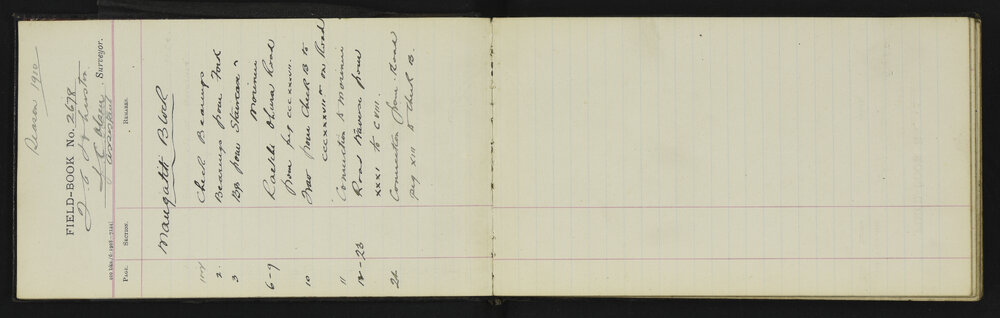 Season 1910
FIELD-BOOK No. 2678
Surveyor.
PAGE. SECTION. REMARKS.
Mangatiti Block
Check Bearings
2 Bearings from Ford
3 Brgs from Staircase &
Morinui
6-9 Raetihi Ohura Road
from peg CCCXXXVII.
10 Trav from Check B to
CCCXXXVII on Road
11 Connection to Morinui
12-23 Road Traverse from
XXXI to CVIII.
24 Connection from Road
peg XIII to Check B.